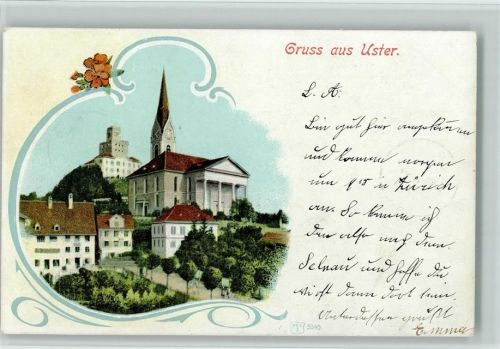 Gruss aus Uster.
L. A.
Bin gut hier angekommen
und komme morgen
um 9 15 in Zürich
an. So komme ich
dann also nach dem
Selnau und hoffe du
wirst dann dort sein.
Unterdessen grüßt
Emma